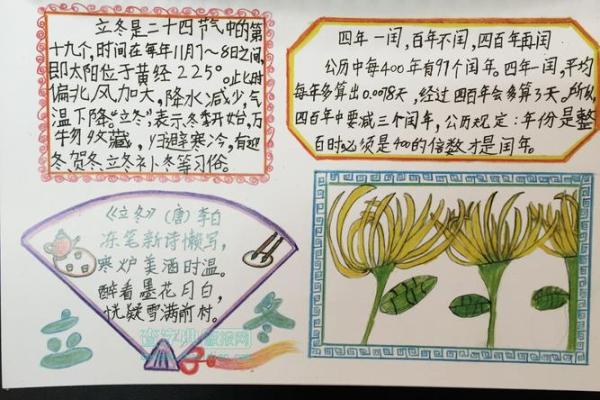 立冬是二十四节气中的第
十九个,时间在每年11月7~8日之间,
即太阳位于黄经225°。此时
偏北风加大,降水减少,气
温下降。“立冬”,表示冬季开始,万
物收藏,归避寒冷,有迎
冬贺冬立冬补冬等习俗。
四年一闰,百年不闰,四百年再闰
公历中每400年有97个闰年。四年一闰,平均
每年多算出0.0078天,经过四百年会多算3天。所以,
四百年中要减三个闰年,公历规定:年份是整
百时必须是400的倍数才是闰年。
《立冬》(唐)李白
冻笔新诗懒写,
寒炉美酒时温。
醉看墨花月白,
恍疑雪满前村。
立
冬